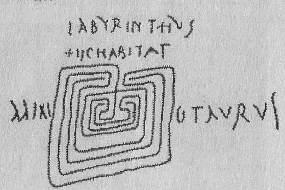 LABYRINTHUS
HIC HABITAT
MIN OTAURUS